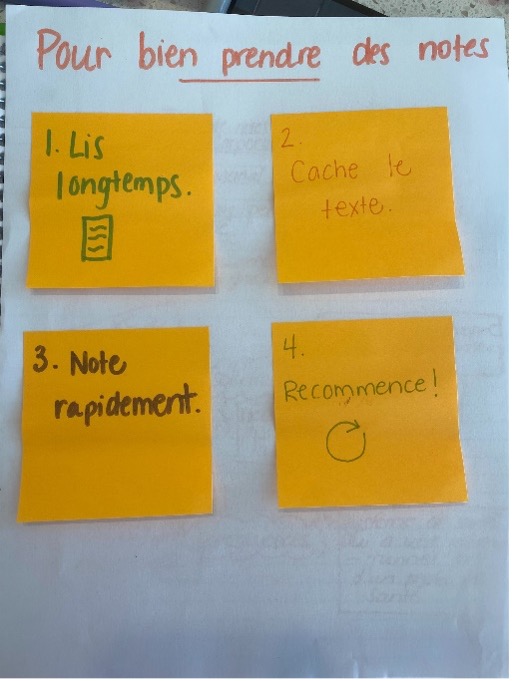 Pour bien prendre des notes
1. Lis
longtemps.
2.
Cache le
texte.
3. Note
rapidement.
4.
Recommence!